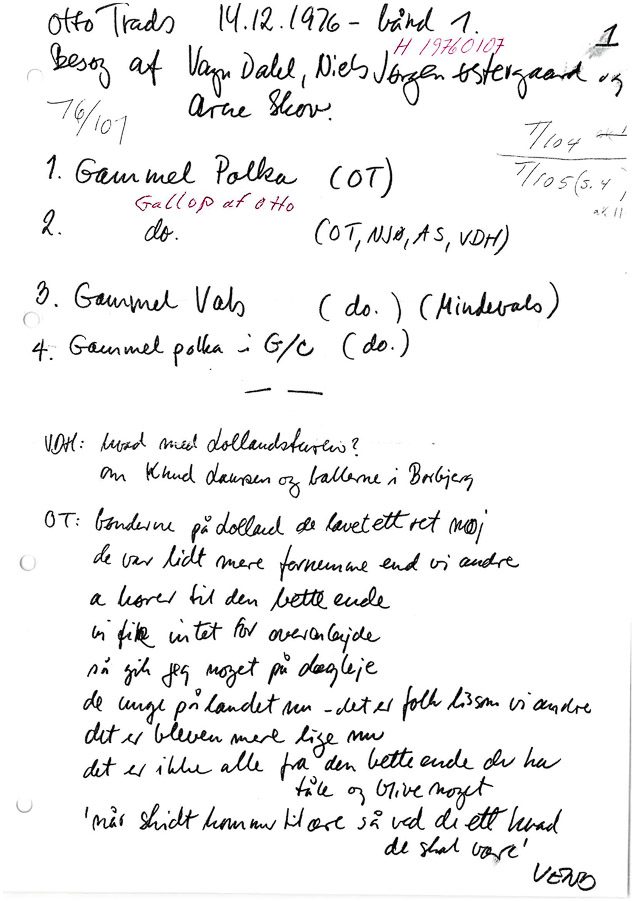 Otto Trads 14.12.1976 - bånd 1.
H 19760107
1
Besøg af Vagn Dahl, Niels Jørgen Østergaard og
Arne Skov.
76/107
T/104
T/105 (s. 4
1. Gammel Polka (OT)
Gallop af Otto
2. do. (OT, NJØ, AS, VDH)
3. Gammel Vals (do.) (Mindevals)
4. Gammel polka i G/C (do.)
VDH: hvad med Lollandsturen?
om Knud Laursen og ballerne i Borbjerg
OT: bønderne på Lolland de lavet ett ret møj
de var lidt mere fornemme end vi andre
a hører til den bette ende
vi fik intet for overarbejde
så gik jeg noget på dagleje
de unge på landet nu - det er folk lissom vi andre
det er bleven mere lige nu
det er ikke alle fra den bette ende der ka
tåle og blive noget
'når skidt kommer til ære så ved de ett hvad
de skal være'
VEND